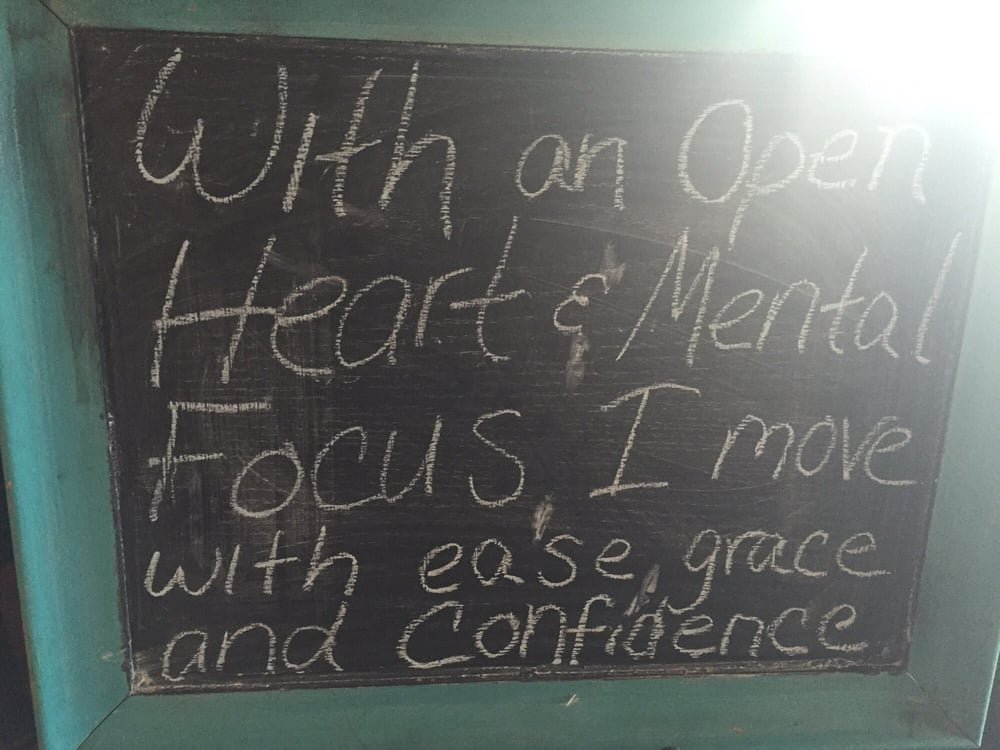 With an Open
Heart & Mental
Focus, I move
with ease, grace
and Confidence